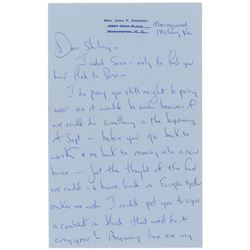 Mrs. John F. Kennedy
Merrywood
McLean, Va
Washington, D. C.
Dear Shirley –
I called Susie – only to find you
had fled to
I do pray you still might be going
over as it would be such heaven if
we could do something in the beginning
of Sept – before you go back to
work & me back to moving into a new
house – Just the thought of the fun
we could have had in Europe together
makes me wish I could get you to sign
a contract in blood that we'd do it
every year! Anyway here are my